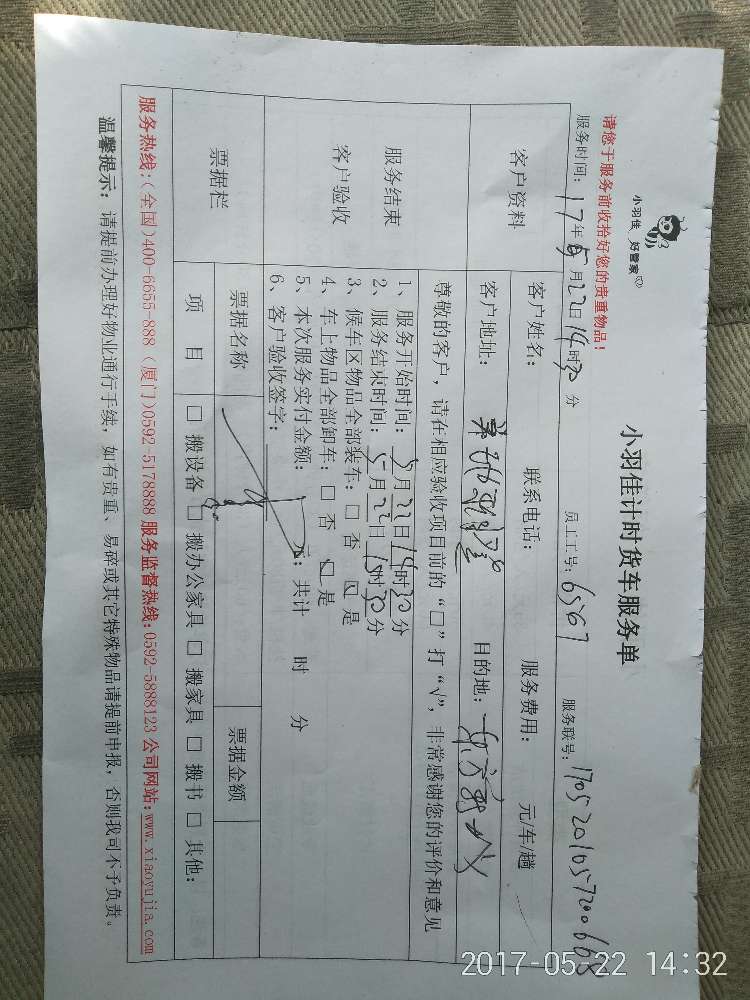 小羽佳 好管家
小羽佳计时货车服务单
请您于服务前收拾好您的贵重物品！
服务时间：17年5月22日14时30分 员工工号：6567 服务联号：
客户资料
客户姓名： 联系电话： 服务费用： 元/车/趟
客户地址： 目的地：
服务结束
客户验收
尊敬的客户，请在相应验收项目前的“□”打“√”，非常感谢您的评价和意见
1、服务开始时间：5月22日14时30分
2、服务结束时间：5月22日15时30分
3、候车区物品全部装车：□ 否 ☑ 是
4、车上物品全部卸车：□ 否 ☑ 是
5、本次服务实付金额： 元；共计 时 分
6、客户验收签字：
票据栏
票据名称 票据金额
项 目 □ 搬设备 □ 搬办公家具 □ 搬家具 □ 搬书 □ 其他：
服务热线：(全国)400-6655-888 (厦门)0592-5178888 服务监督热线：0592-5888123 公司网站：www.xiaoyujia.com
温馨提示：请提前办理好物业通行手续，如有贵重、易碎或其它特殊物品请提前申报，否则我司不予负责。
2017-05-22 14:32